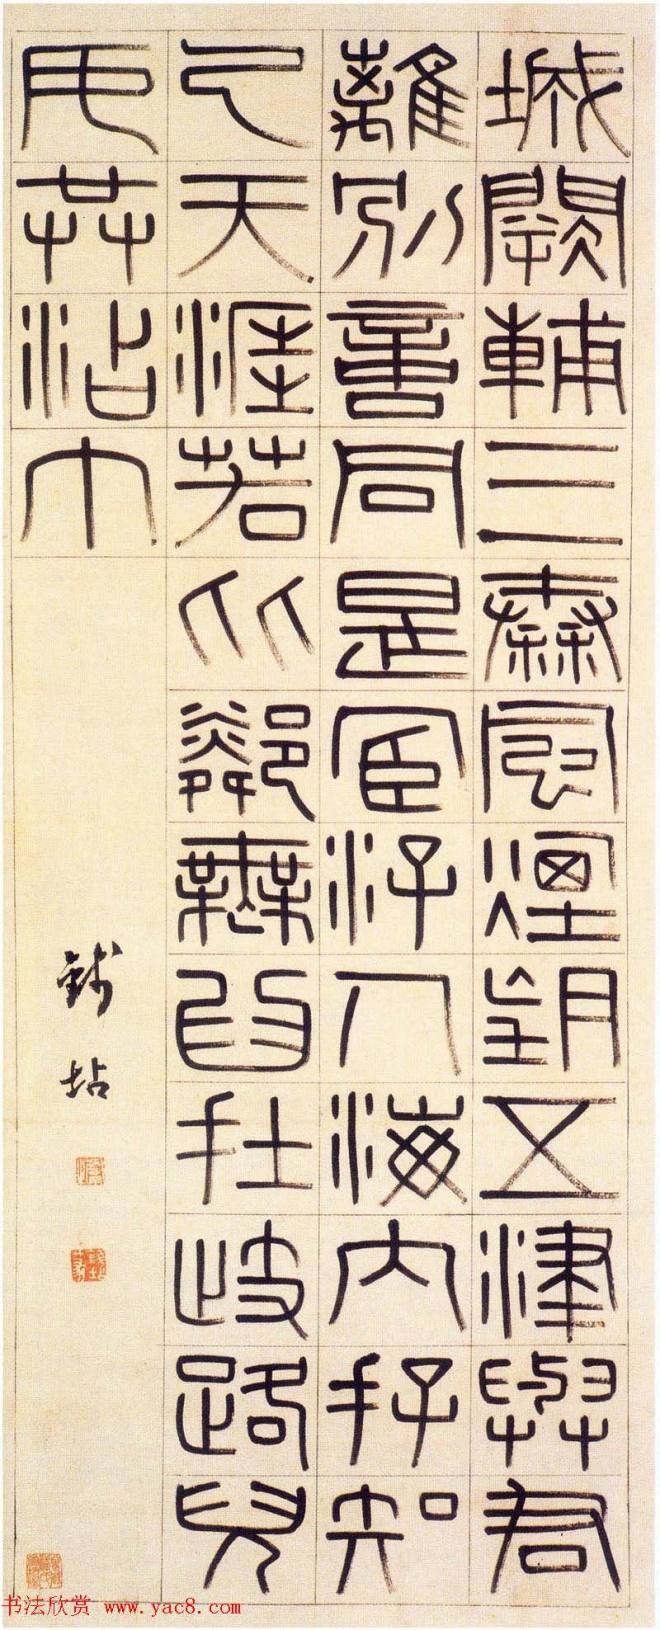 城闕輔三秦風煙望五津與君
離別意同是宦游人海內存知
己天涯若比鄰無為在歧路兒
女共沾巾
錢坫
书法欣赏 www.yac8.com